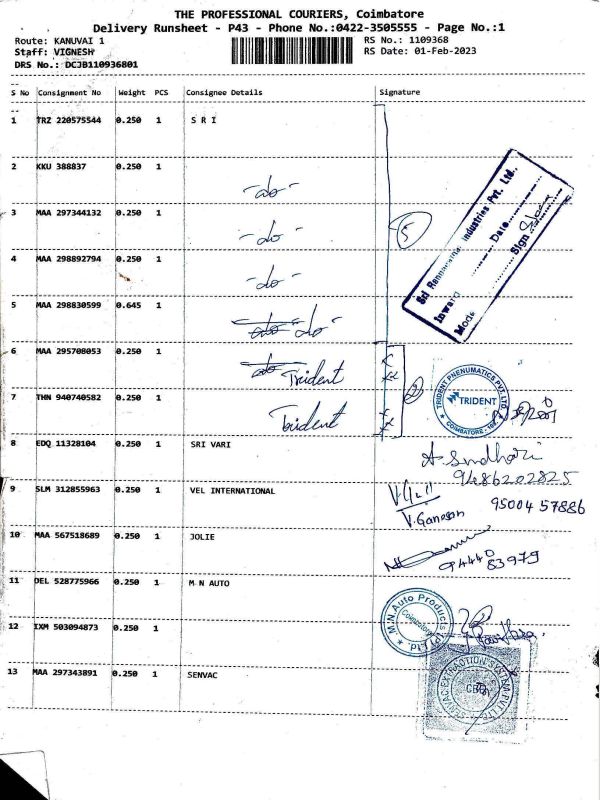 THE PROFESSIONAL COURIERS, Coimbatore
Delivery Runsheet - P43 - Phone No.:0422-3505555 - Page No.:1
Route: KANUVAI 1
RS No.: 1109368
Staff: VIGNESH
RS Date: 01-Feb-2023
DRS No.: DCJB110936801
S No Consignment No Weight PCS Consignee Details Signature
1 TRZ 220575544 0.250 1 S R I
2 KKU 388837 0.250 1
-do-
3 MAA 297344132 0.250 1
-do-
5
4 MAA 298892794 0.250 1
-do-
Sri Industries Pvt. Ltd.,
Inward Date
Mode Sign
5 MAA 298830599 0.645 1
do do-
6 MAA 295708053 0.250 1
do Trident
7 THN 940740582 0.250 1
Trident
2
TRIDENT PNEUMATICS PVT. LTD.
TRIDENT
COIMBATORE
8 EDQ 11328104 0.250 1 SRI VARI
9486202825
9 SLM 312855963 0.250 1 VEL INTERNATIONAL
V. Ganesan 9500457886
10 MAA 567518689 0.250 1 JOLIE
94440
83979
11 DEL 528775966 0.250 1 M N AUTO
M.N. Auto Products (P) Ltd
Coimbatore
12 IXM 503094873 0.250 1
13 MAA 297343891 0.250 1 SENVAC
SYSTEM PVT LTD